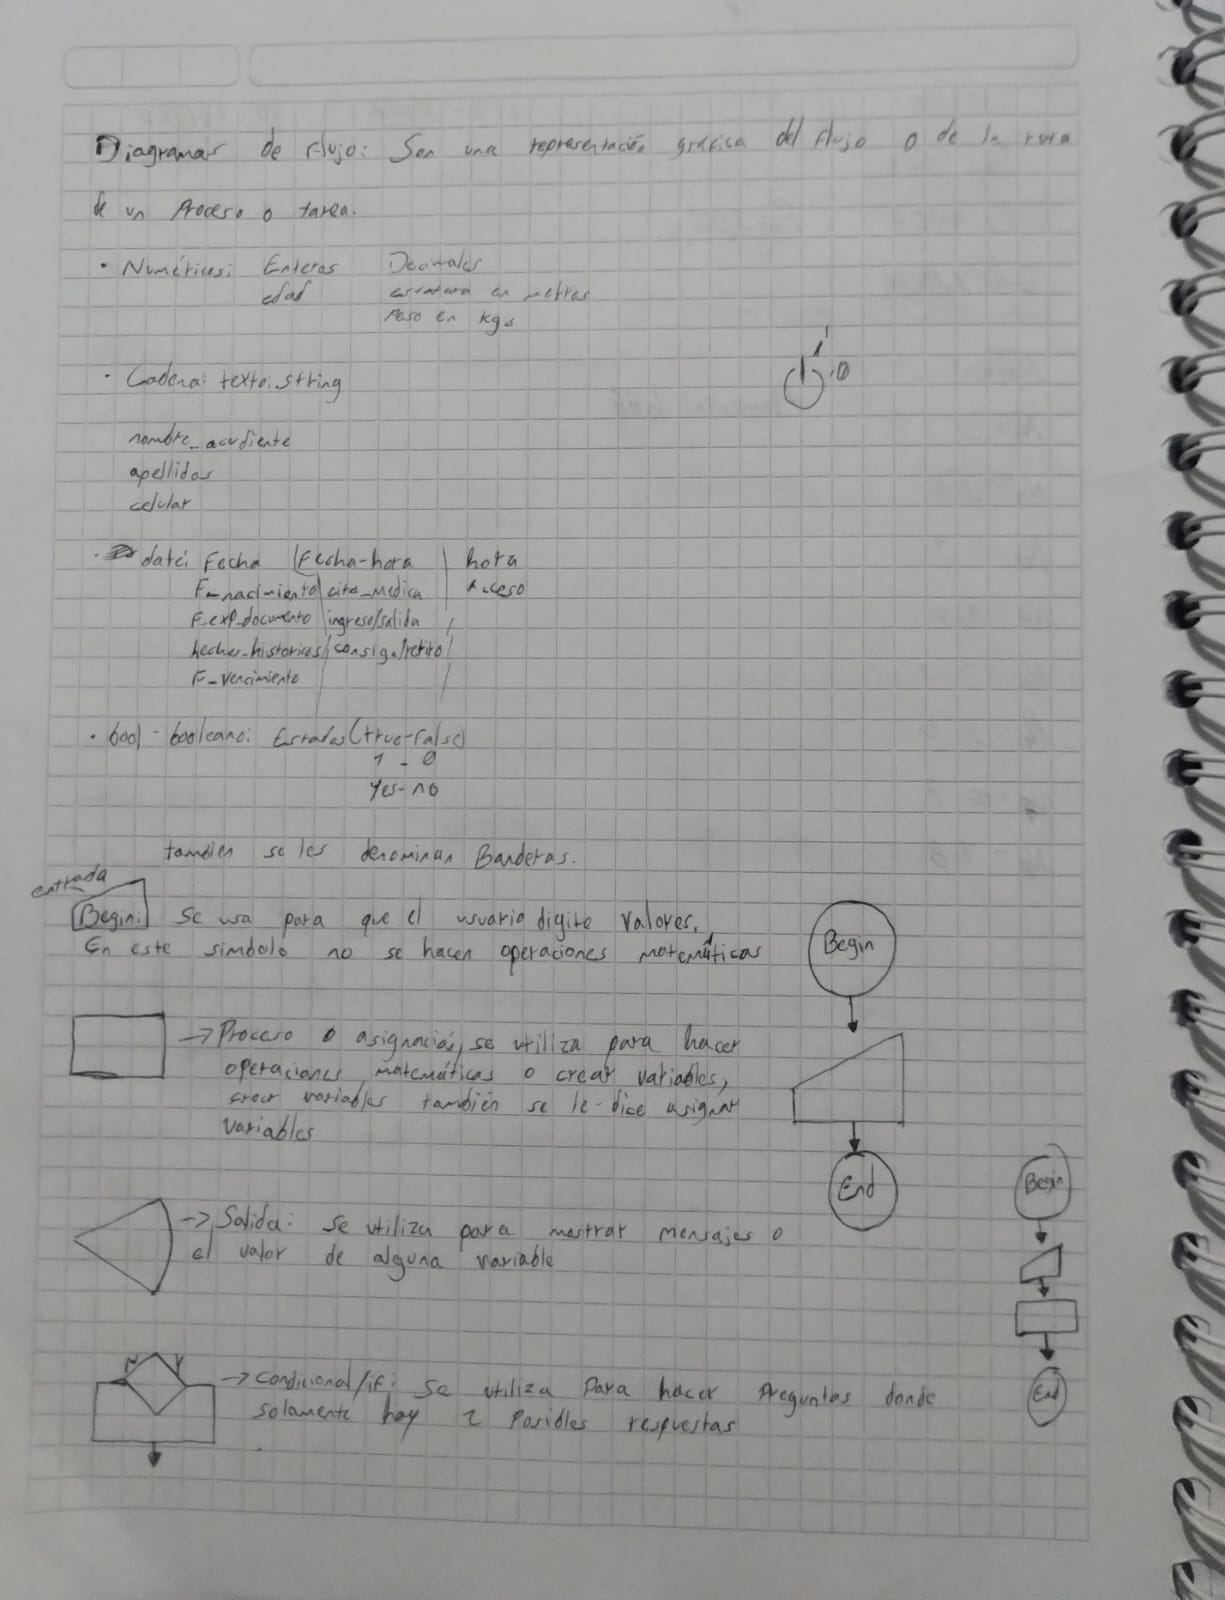 Diagramas de flujo: Son una representación gráfica del flujo o de la ruta
de un Proceso o tarea.
• Numéricos: Enteros Decimales
edad estatura en metros
Peso en kgs
1
0
• Cadena: texto: string
nombre_acudiente
apellidos
celular
• date: Fecha | Fecha-hora | hora
F-nacimiento | cita_medica | Acceso
F_exp_documento | ingreso/salida
hechos_historicos | consig./retiro
F-vencimiento
• bool - booleano: Estados (true-False)
1 - 0
Yes-no
tambien se les denominan Banderas.
entrada
Begin: Se usa para que el usuario digite valores.
En este simbolo no se hacen operaciones matemáticas
Begin
→ Proceso o asignación, se utiliza para hacer
operaciones matemáticas o crear variables,
crear variables también se le dice asignar
variables
End
Begin
→ Salida: Se utiliza para mostrar mensajes o
el valor de alguna variable
N Y
→ Condicional/if: Se utiliza Para hacer Preguntas donde
solamente hay 2 Posibles respuestas
End